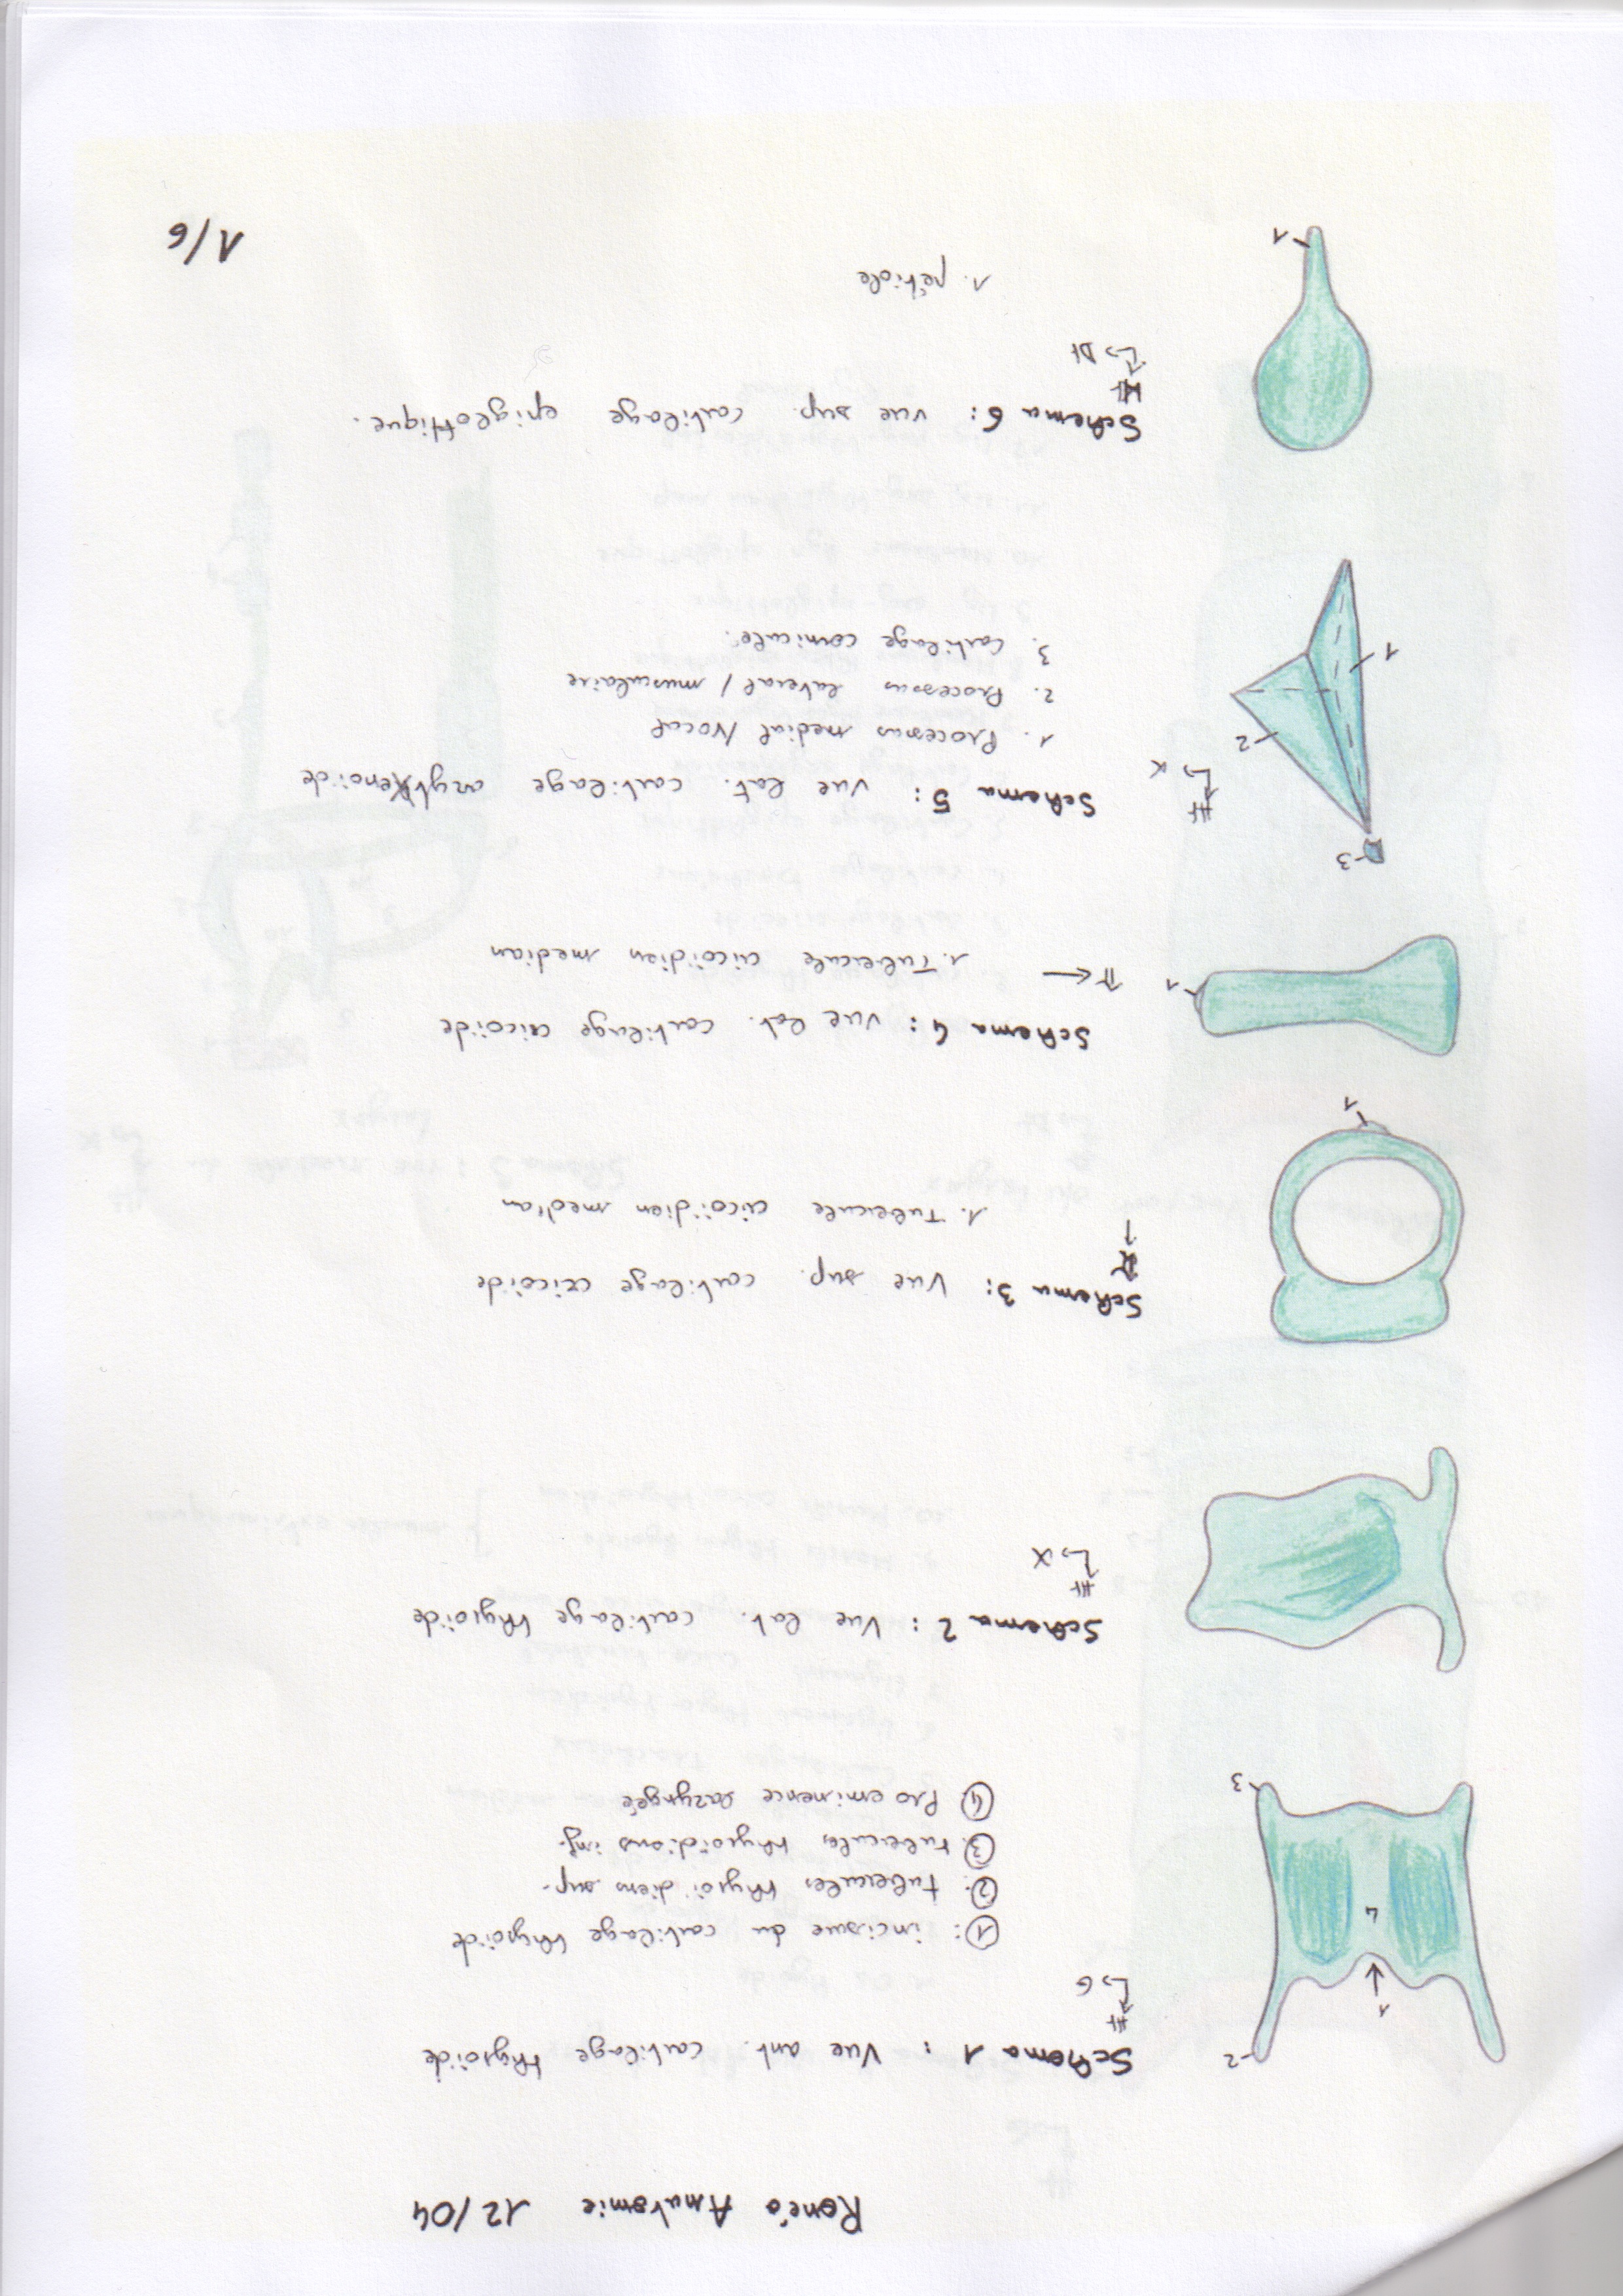 Ronéo Anatomie 12/04
Schema 1 : Vue ant. cartilage thyroïde
Ht
G
① : incisure du cartilage thyroïde
② : tubercules thyroïdiens sup.
③ tubercules thyroïdiens inf.
④ Proeminence laryngée
1
2
3
4
Schema 2 : Vue lat. cartilage thyroïde
Ht
Schema 3 : Vue sup. cartilage cricoïde
1. Tubercule cricoïdien median
1
Schema 4 : Vue lat. cartilage cricoïde
1. Tubercule cricoïdien median
1
Schema 5 : Vue lat. cartilage arythenoïde
Ht
1. Processus medial / vocal
2. Processus lateral / musculaire
3. Cartilage corniculé.
3
2
1
Schema 6 : Vue sup. cartilage epiglottique.
Ht
Dt
1. pétiole
1
1/6